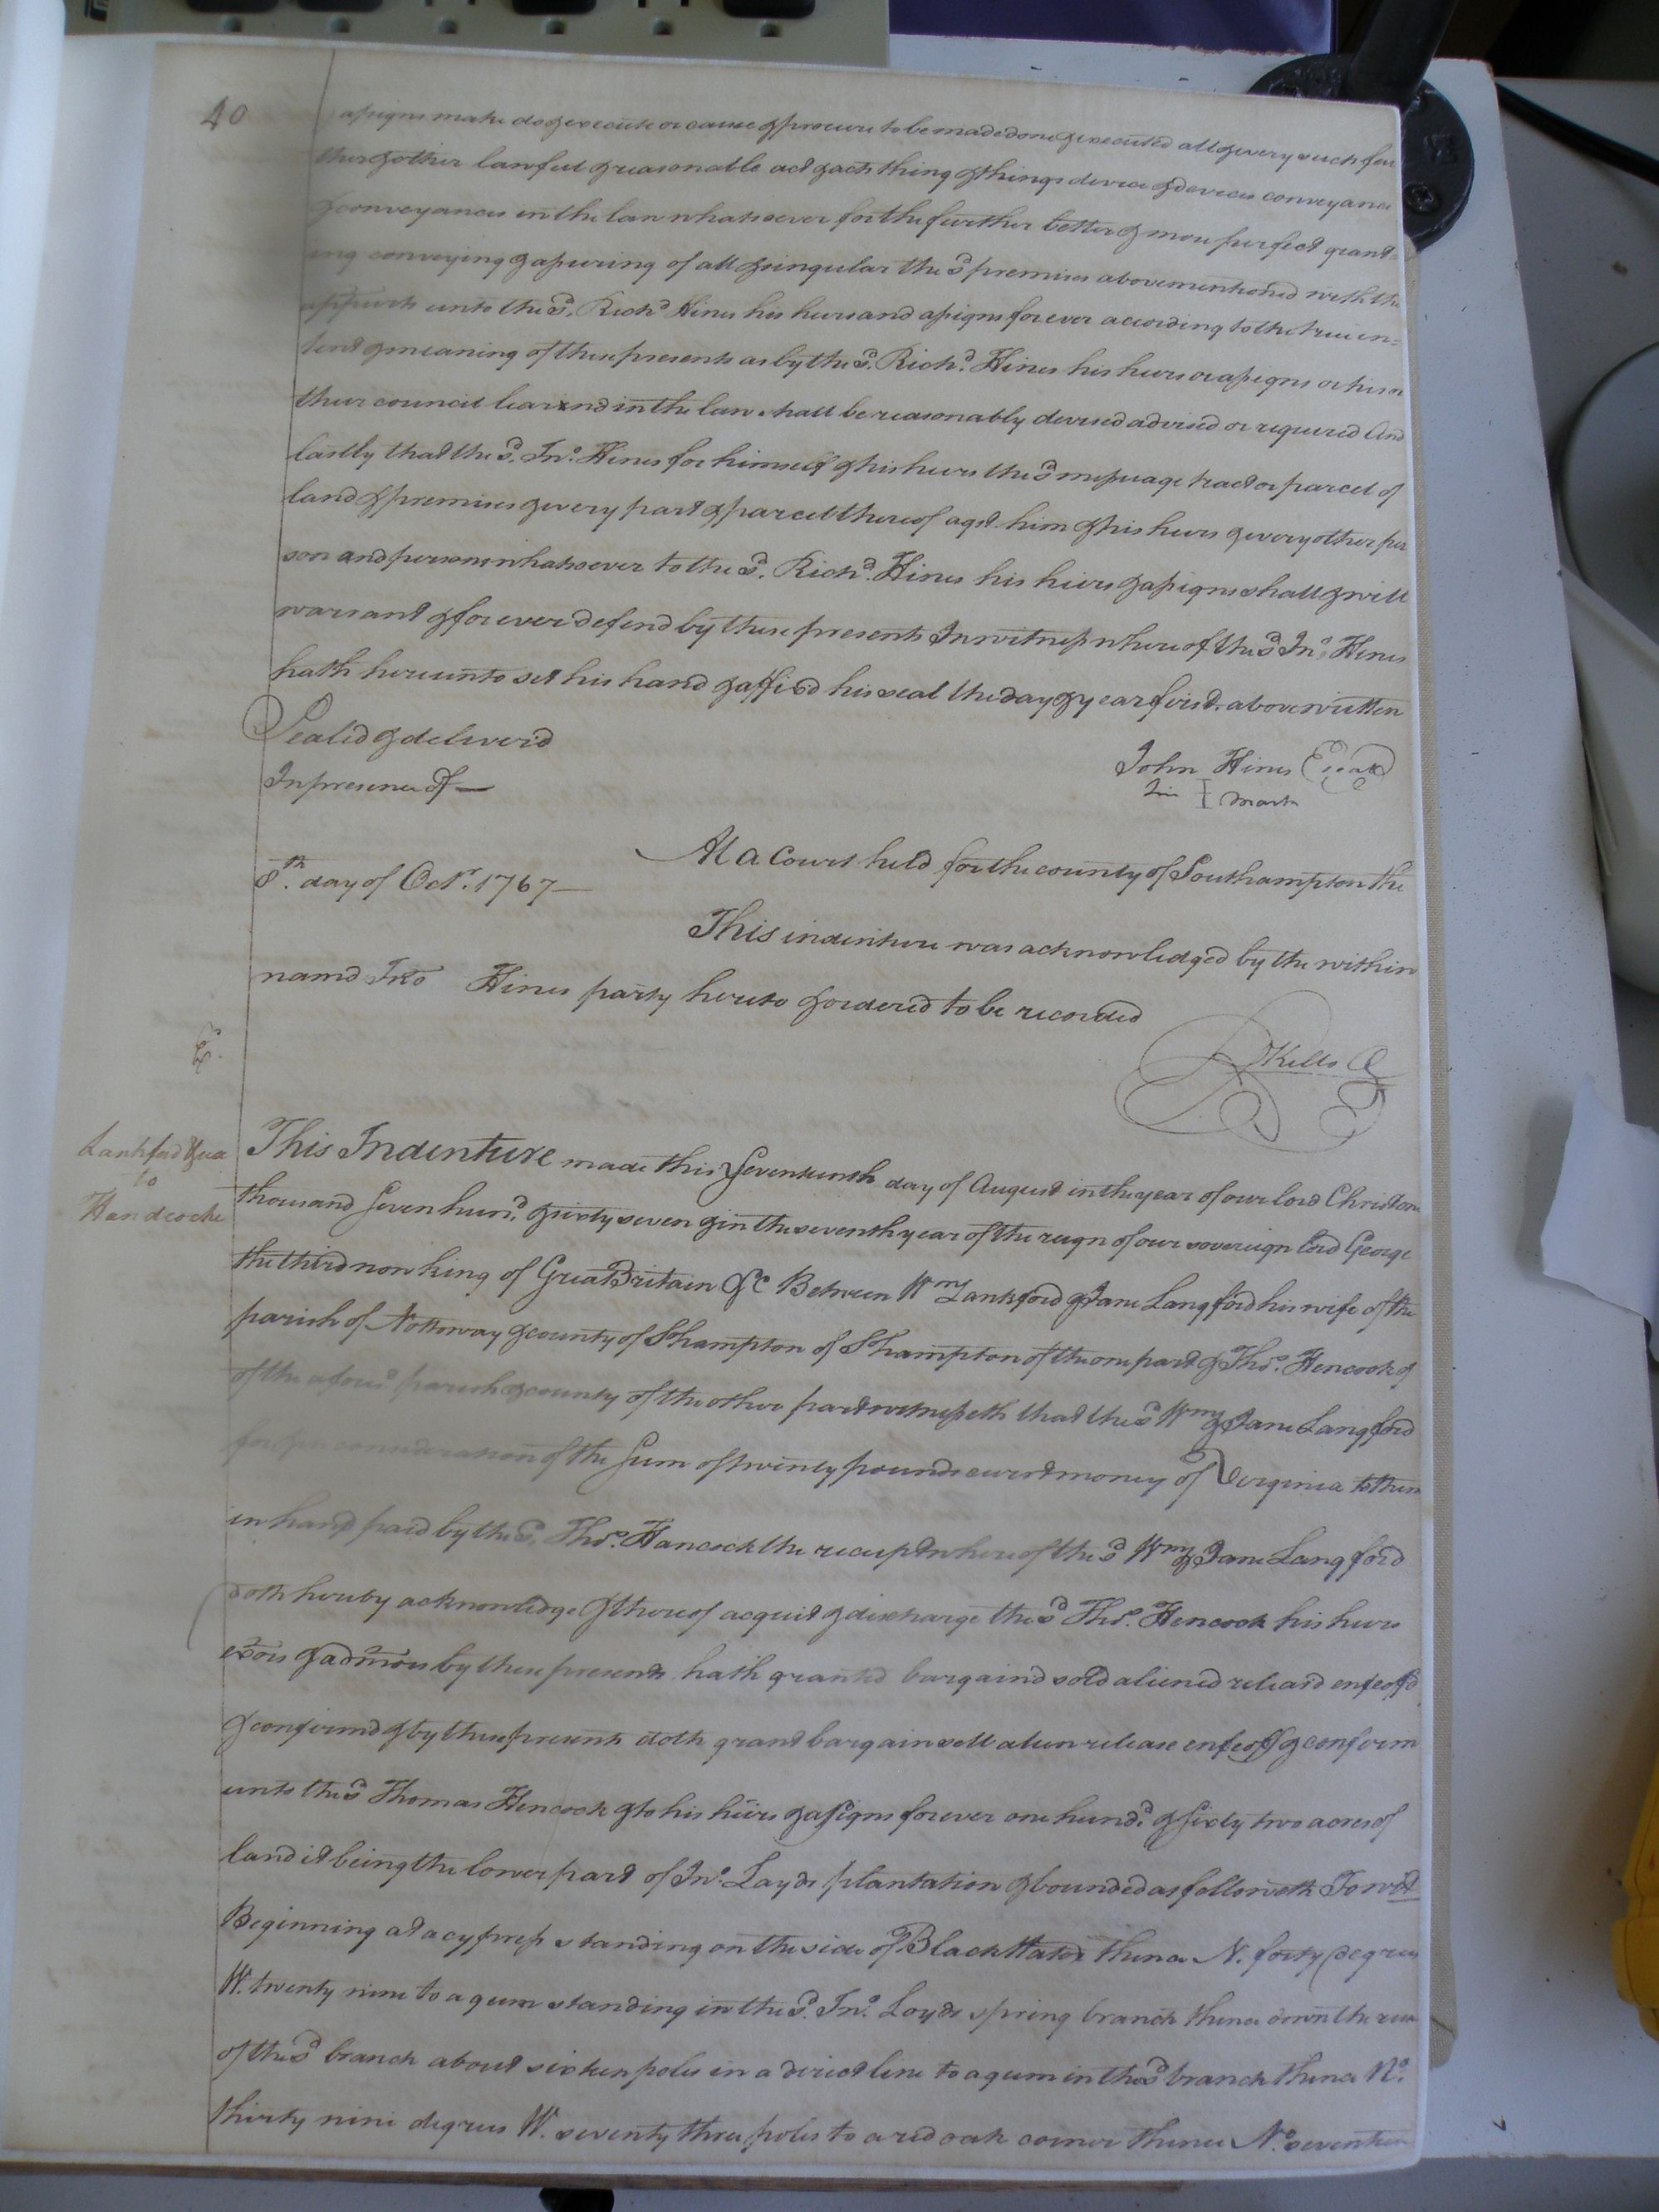 40
assigns make do & execute or cause & procure to be made done & executed all & every such fur
ther & other lawful & reasonable act & acts thing & things device & devices conveyance
& conveyances in the law whatsoever for the further better & more perfect grant=
ing conveying & assuring of all & singular the sd. premises abovementioned with the
appurts unto the sd. Richd. Hines his heirs and assigns forever according to the true in=
tent & meaning of these presents as by the sd. Richd. Hines his heirs or assigns or his or
their council learned in the law shall be reasonably devised advised or required And
lastly that the sd. Jno. Hines for himself & his heirs the sd. messuage tract or parcel of
land & premises & every part & parcel thereof agst. him & his heirs & every other per
son and persons whatsoever to the sd. Richd. Hines his heirs & assigns shall & will
warrant & for ever defend by these presents In witness whereof the sd. Jno. Hines
hath hereunto set his hand & affixd his seal the day & year first above written
Sealed & deliverd
In presence of —
John Hines Seal
his I mark
At a Court held for the county of Southampton the
8th. day of Octr. 1767 —
This indenture was acknowledged by the within
namd Jno Hines party hereto & ordered to be recorded
Kello
Lankford & ux
to
Handcocke
This Indenture made this Seventeenth day of August in the year of our lord Christ one
thousand Seven hund. & sixty seven & in the seventh year of the reign of our sovereign Lord George
the third now king of Great Britain &c Between Wm. Lankford & Jane Langford his wife of the
parish of Nottoway & county of Shampton of Shampton of the one part & Thos. Hencock of
of the aforsd. parish & county of the other part witnesseth that the sd. Wm. & Jane Langford
for & in consideration of the Sum of twenty pounds curst money of Virginia to them
in hand paid by the sd. Thos. Hancock the receipt whereof the sd. Wm. & Jane Langford
doth hereby acknowledge & thereof acquit & discharge the sd. Thos. Hencock his heirs
exors & admors by these presents hath granted bargaind sold aliened releasd enfeoffd
& confirmd & by these presents doth grant bargain sell alien release enfeoff & conferm
unto the sd. Thomas Hencock & to his heirs & assigns forever one hund. & Sixty two acres of
land it being the lower part of Jno. Loyds plantation & bounded as followeth To wit
Beginning at a cypress standing on the side of Black Water thence N. forty degrees
W. twenty nine to a gum standing in the sd. Jno. Loyds spring branch thence down the run
of the sd. branch about sixteen poles in a direct line to a gum in the sd. branch thence No.
thirty nine degrees W. seventy three poles to a red oak corner thence No. seventeen